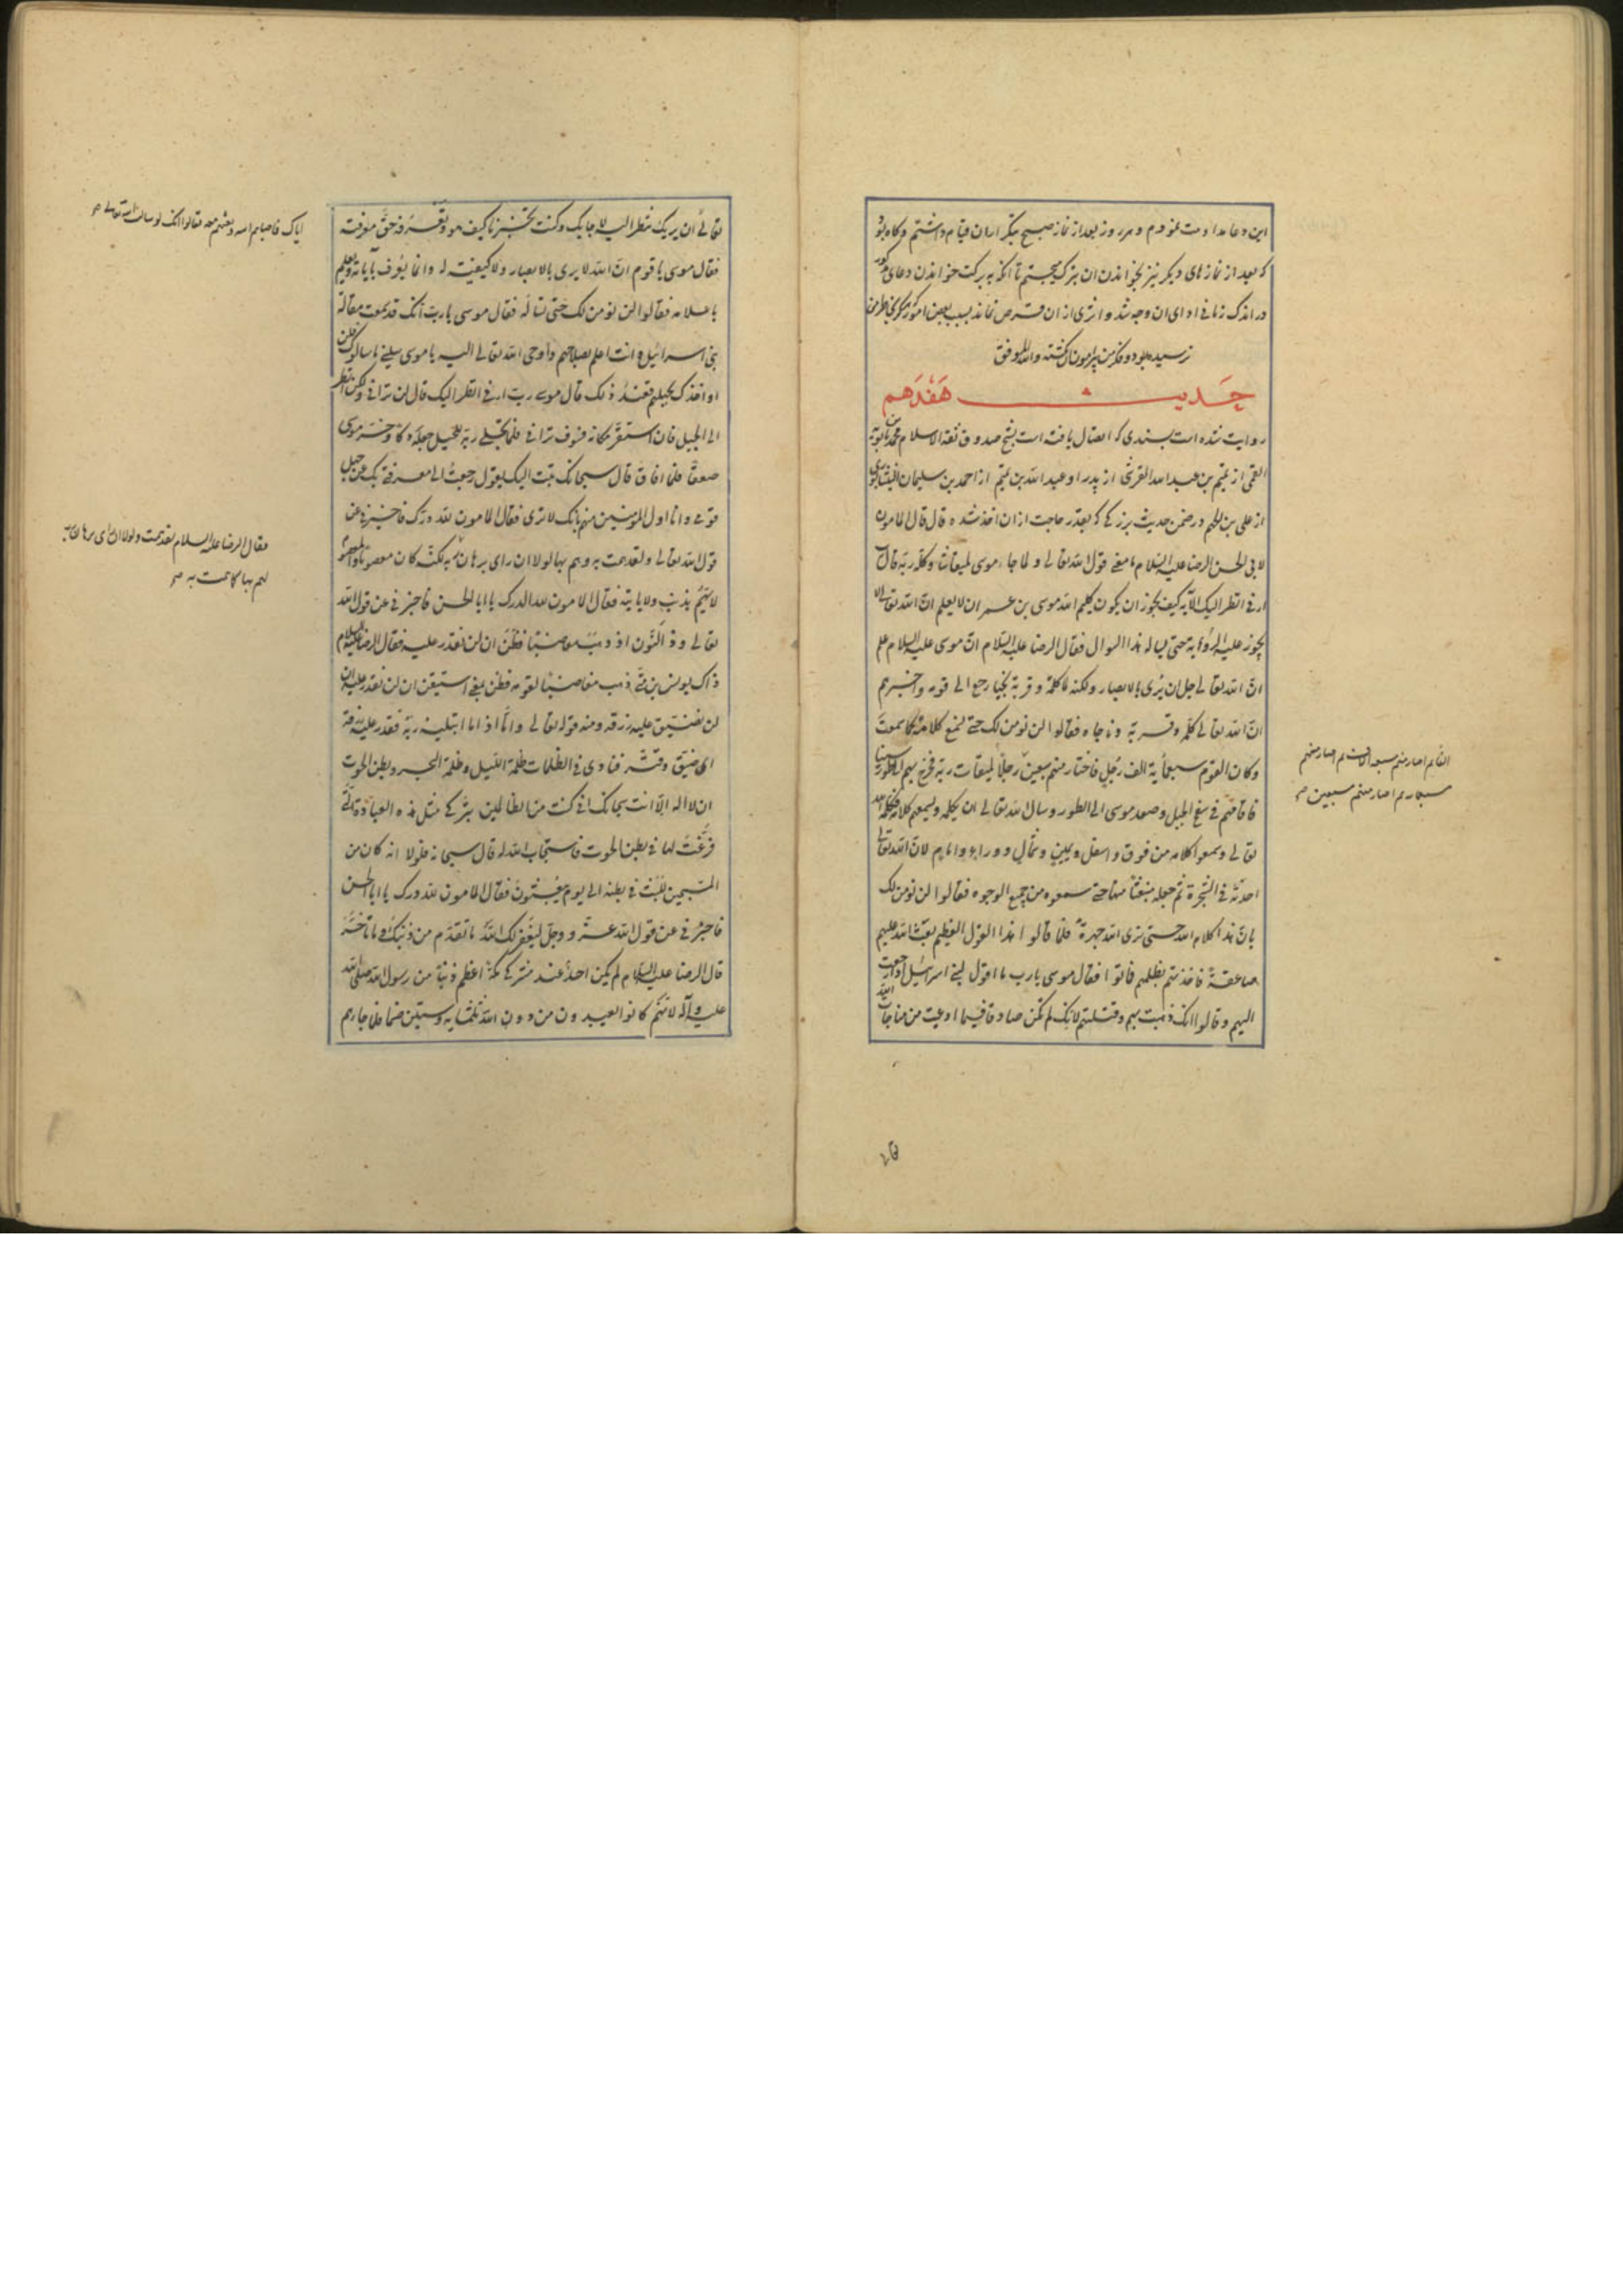 این دعا مداومت نمودم و هر روز بعد از نماز صبح بتکرار ان قیام داشتم و گاه بود
که بعد از نمازهای دیگر نیز بخواندن ان تبرک میجستم تا آنکه به برکت خواندن دعای مذکور
در اندک زمانی ادای ان وجه شد و اثری از ان قرض نماند بسبب بعضی امور که هرگز بخاطر من
نرسیده بود و فکر من پیرامون ان نگشته والله الموفق
حدیث هفدهم
روایت شده است بسندی که اتصال یافته است بشیخ صدوق ثقة الاسلام محمد بن بابویه
القمی از تمیم بن عبد الله القرشی از پدر او عبد الله بن تمیم از احمد بن سلیمان النیشابوری
از علی بن الجهم در ضمن حدیث بزرگی که بقدر حاجت از ان اخذ شده قال قال المامون
لابی الحسن الرضا علیه السلام ما معنی قول الله تعالی و لما جاء موسی لمیقاتنا و کلمه ربه قال
ارنی انظر الیک الآیه کیف یجوز ان یکون کلیم الله موسی بن عمران لا یعلم انّ الله تعالی لا
یجوز علیه الرؤیة حتی یساله هذا السوال فقال الرضا علیه السلام انّ موسی علیه السلام علم
انّ الله تعالی جل ان یُری بالابصار و لکنه لما کلمه و قربه نجیا رجع الی قومه و اخبرهم
انّ الله تعالی کلّمه و قربه و ناجاه فقالوا لن نومن لک حتی نسمع کلامه کما سمعت
و کان القوم سبعمایة الف رَجُل فاختار منهم سبعین رجلاً لمیقات ربه فخرج بهم الی طور سینا
فاقامهم فی سفح الجبل و صعد موسی الی الطور و سال الله تعالی ان یکلمه و یسمعهم کلامه فکلمه الله
تعالی و سمعوا کلامه من فوق و اسفل و یمین و شمال و وراء و امام لان الله تعالی
احدثه فی الشجرة ثم جعله منبعثاً منها حتی سمعوه من جمیع الوجوه فقالوا لن نومن لک
بانّ هذا کلام الله حتی نری الله جهرةً فلما قالوا هذا القول العظیم بعث الله علیهم
صاعقةً فاخذتهم بظلمهم فماتوا فقال موسی یارب ما اقول لبنی اسرائیل اذا رجعت
الیهم و قالوا انک ذهبت بهم و قتلتهم لانک لم تکن صادقا فیما ادعیت من مناجات الله
الف ثم اختار منهم سبعة الاف ثم اختار منهم
سبعمایه ثم اختار منهم سبعین صح
تعالی ان یریک تنظر الیه لاجابک و کنت تخبرنا کیف هو و نعرفه حقّ معرفته
فقال موسی یا قوم انّ الله لا یری بالابصار و لا کیفیّة له و انما یُعرف بآیاته و یعلم
باعلامه فقالوا لن نومن لک حَتی تساله فقال موسی یا ربّ انک قد سمعت مقالة
بنی اسرائیل و انت اعلم بصلاحهم و اوحی الله تعالی الیه یا موسی سلنی ما سالوک فلن
اواخذک بجهلهم فعند ذلک قال موسی ربّ ارنی انظر الیک قال لن ترانی و لکن انظر
الی الجبل فان استقرّ مکانه فسوف ترانی فلما تجلّی ربّه للجبل جعله دکا و خرّ موسی
صعقاً فلما افاق قال سبحانک تبت الیک یقول رجعت الی معرفتی بک عن جهل
قومی و انا اول المؤمنین منهم بانک لا تری فقال المامون لله درّک فاخبرنی عن
قول الله تعالی و لقد همت به و هم بها لولا ان رای برهان ربه لکنّه کان معصوماً و المعصوم
لا یهمّ بذنب و لا یاتیه فقال المامون لله الدرک یا ابا الحسن فاخبرنی عن قول الله
تعالی و ذا النّون اذ ذهب مغاضبا فظنّ ان لن نقدر علیه فقال الرضا علیه السلام
ذاک یونس بن متی ذهب مغاضباً لقومه فظن بمعنی استیقن ان لن نقدر علیه ان
لن نضیّق علیه رزقه و منه قوله تعالی و اما اذا ما ابتلیه ربه فقدر علیه رزقه
ای ضیّق و قتّر فنادی فی الظلمات ظلمة اللیل و ظلمة البحر و بطن الحوت
ان لا اله الّا انت سبحانک انی کنت من الظالمین بترکی مثل هذه العبادة التی
فرغت لها فی بطن الحوت فاستجاب الله له قال سبحانه فلولا انه کان من
المسبحین للبث فی بطنه الی یوم یبعثون فقال المامون لله درک یا ابا الحسن
فاخبرنی عن قول الله عزّ و جلّ لیغفر لک اللهُ ما تقدّم من ذنبک و ما تأخّر
قال الرضا علیه السلام لم یکن احدٌ عند مشرکی مکة اعظم ذنباً من رسول الله صلی الله
علیه و آله لانّهم کانوا یعبدون من دون الله ثلثمایه و ستین صنما فلما جاءهم
ایاک فاحیاهم الله و بعثهم معه فقالوا انک لو سالت الله تعالی صح
فقال الرضا علیه السلام لقد همت و لولا ان رای برهان ربه
لهم بها کما همت به صح